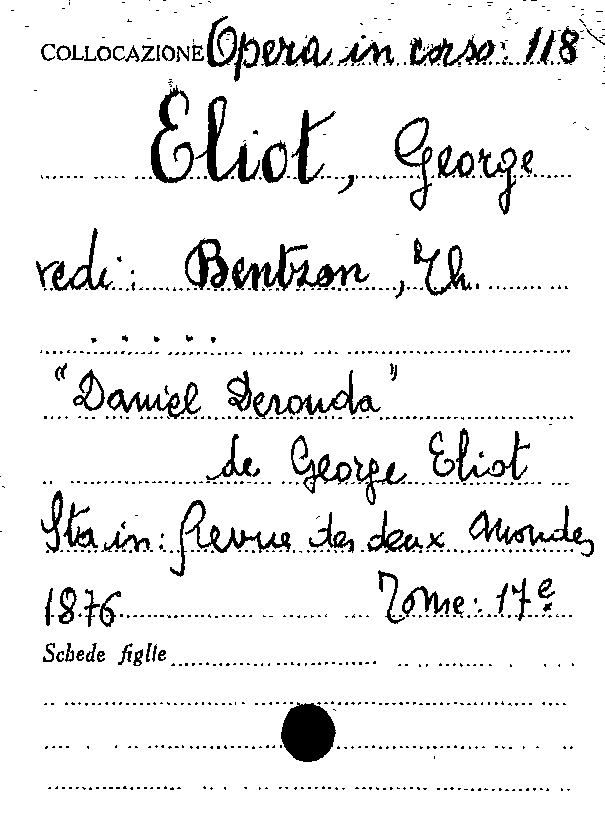 COLLOCAZIONE Opera in corso: 118
Eliot, George
vedi: Bentzon, Th.
. . . . .
"Daniel Deronda"
de George Eliot
Sta in: Revue des deux Mondes
1876 Tome: 17e
Schede figlie